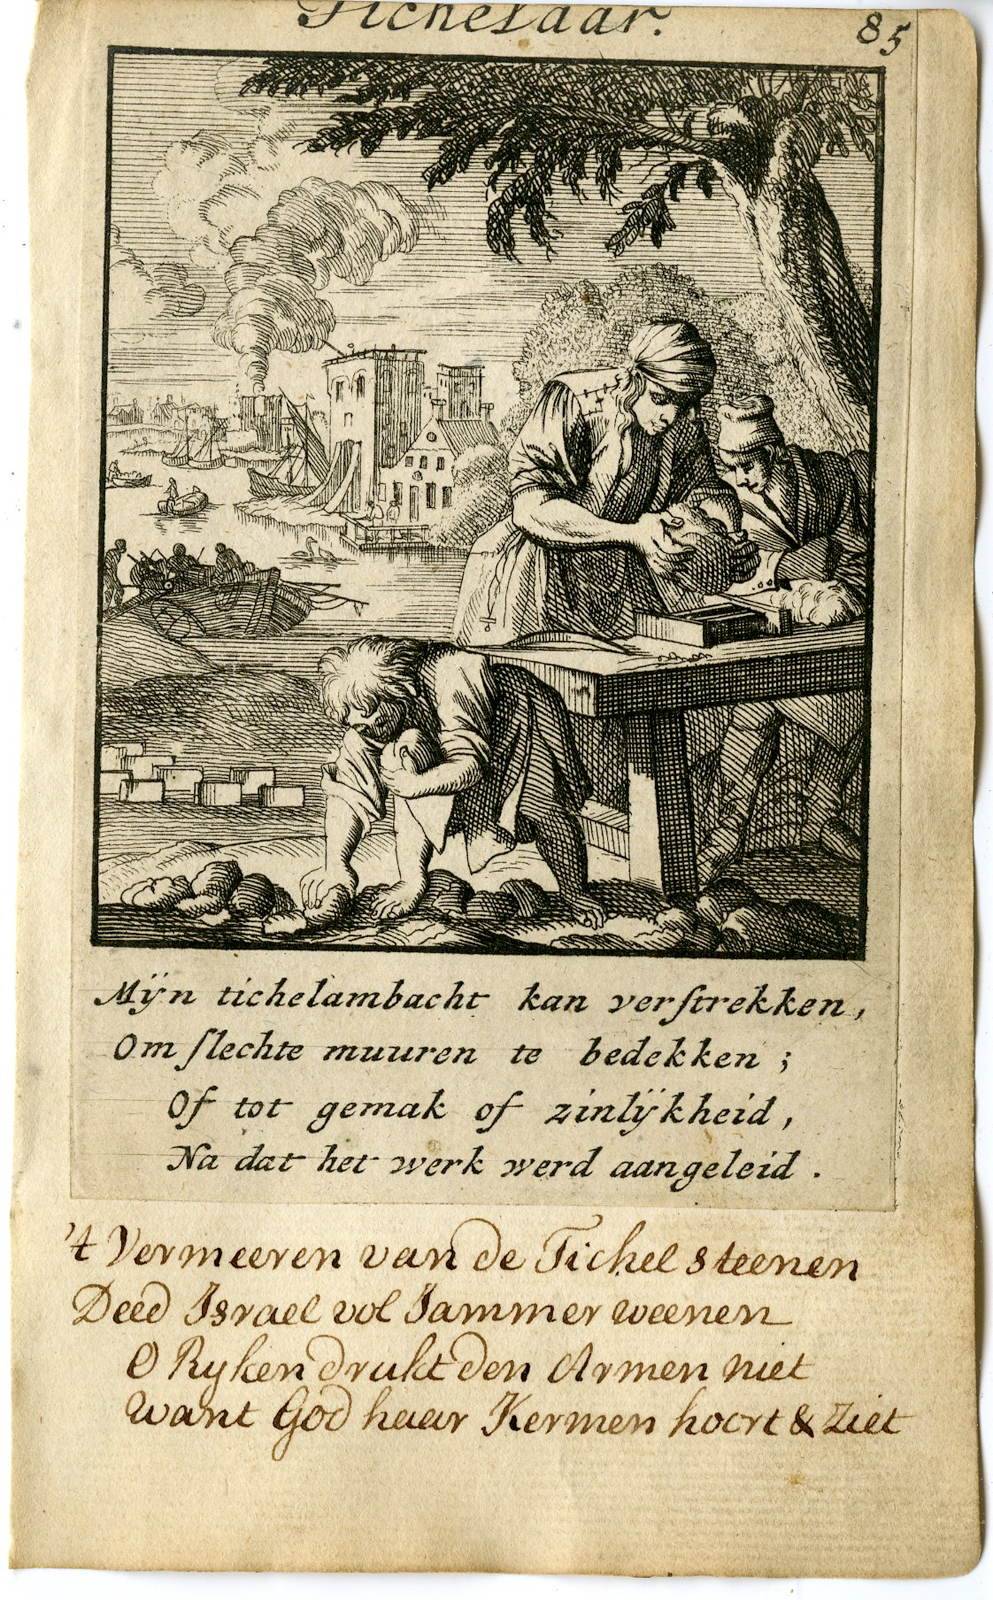 Tichelaar.
85
Mijn tichelambacht kan verſtrekken,
Om ſlechte muuren te bedekken;
Of tot gemak of zinlijkheid,
Na dat het werk werd aangeleid.
't Vermeeren van de Tichel steenen
Deed Israel vol Jammer weenen
O Ryken drukt den Armen niet
Want God haar Kermen hoort & Ziet